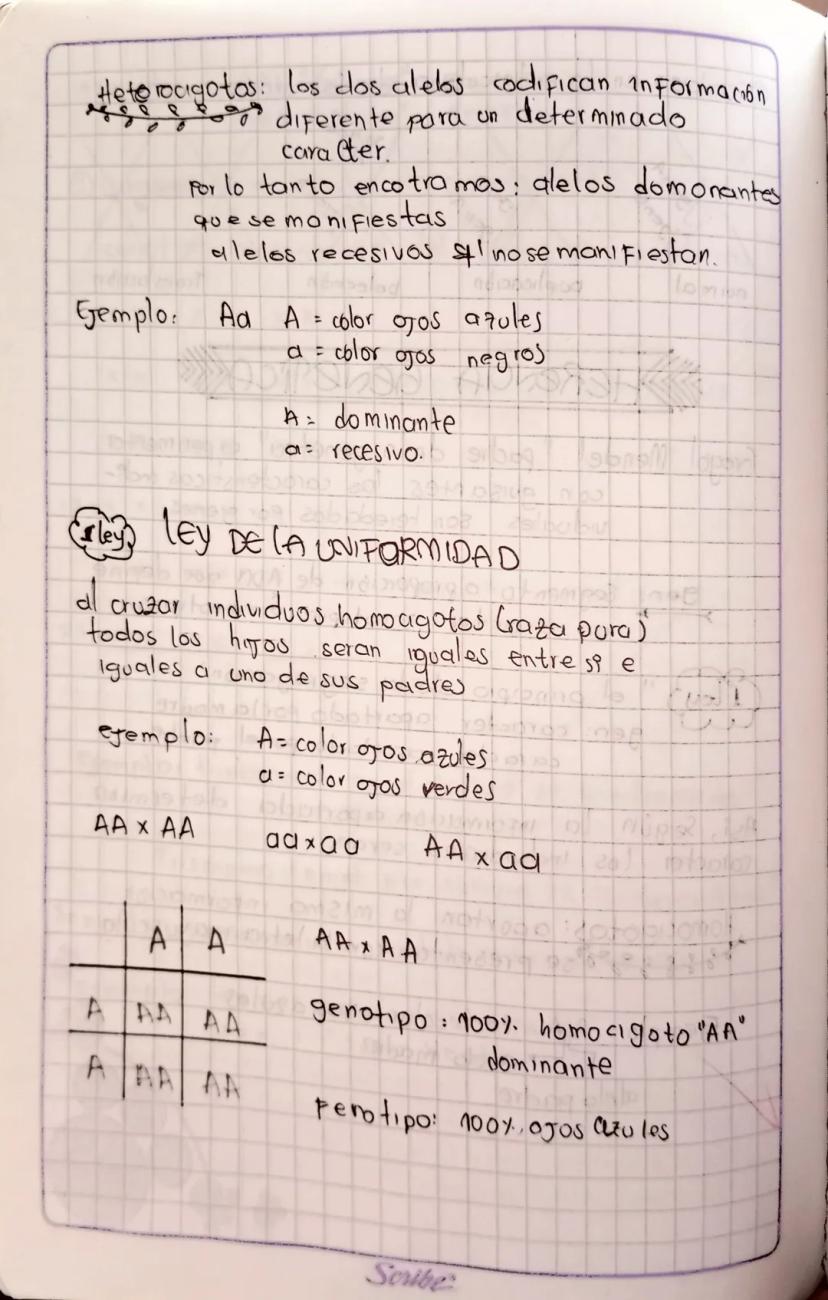 Heterocigotos: los dos alelos codifican información
diferente para un determinado
caracter.
Por lo tanto encotramos: alelos domonantes
que se monifiestas
alelos recesivos no se manifiestan.
Ejemplo: Aa A = color ojos azules
a = color ojos negros
A = dominante
a = recesivo.
1 ley LEY DE LA UNIFORMIDAD
al cruzar individuos homocigotos (raza pura)
todos los hijos seran iguales entre si e
iguales a uno de sus padres
ejemplo: A = color ojos azules
a = color ojos verdes
AA x AA aa x aa AA x aa
A A AA x AA
A AA AA genotipo: 100% homocigoto "AA"
dominante
A AA AA
Fenotipo: 100% ojos azules
Scribe